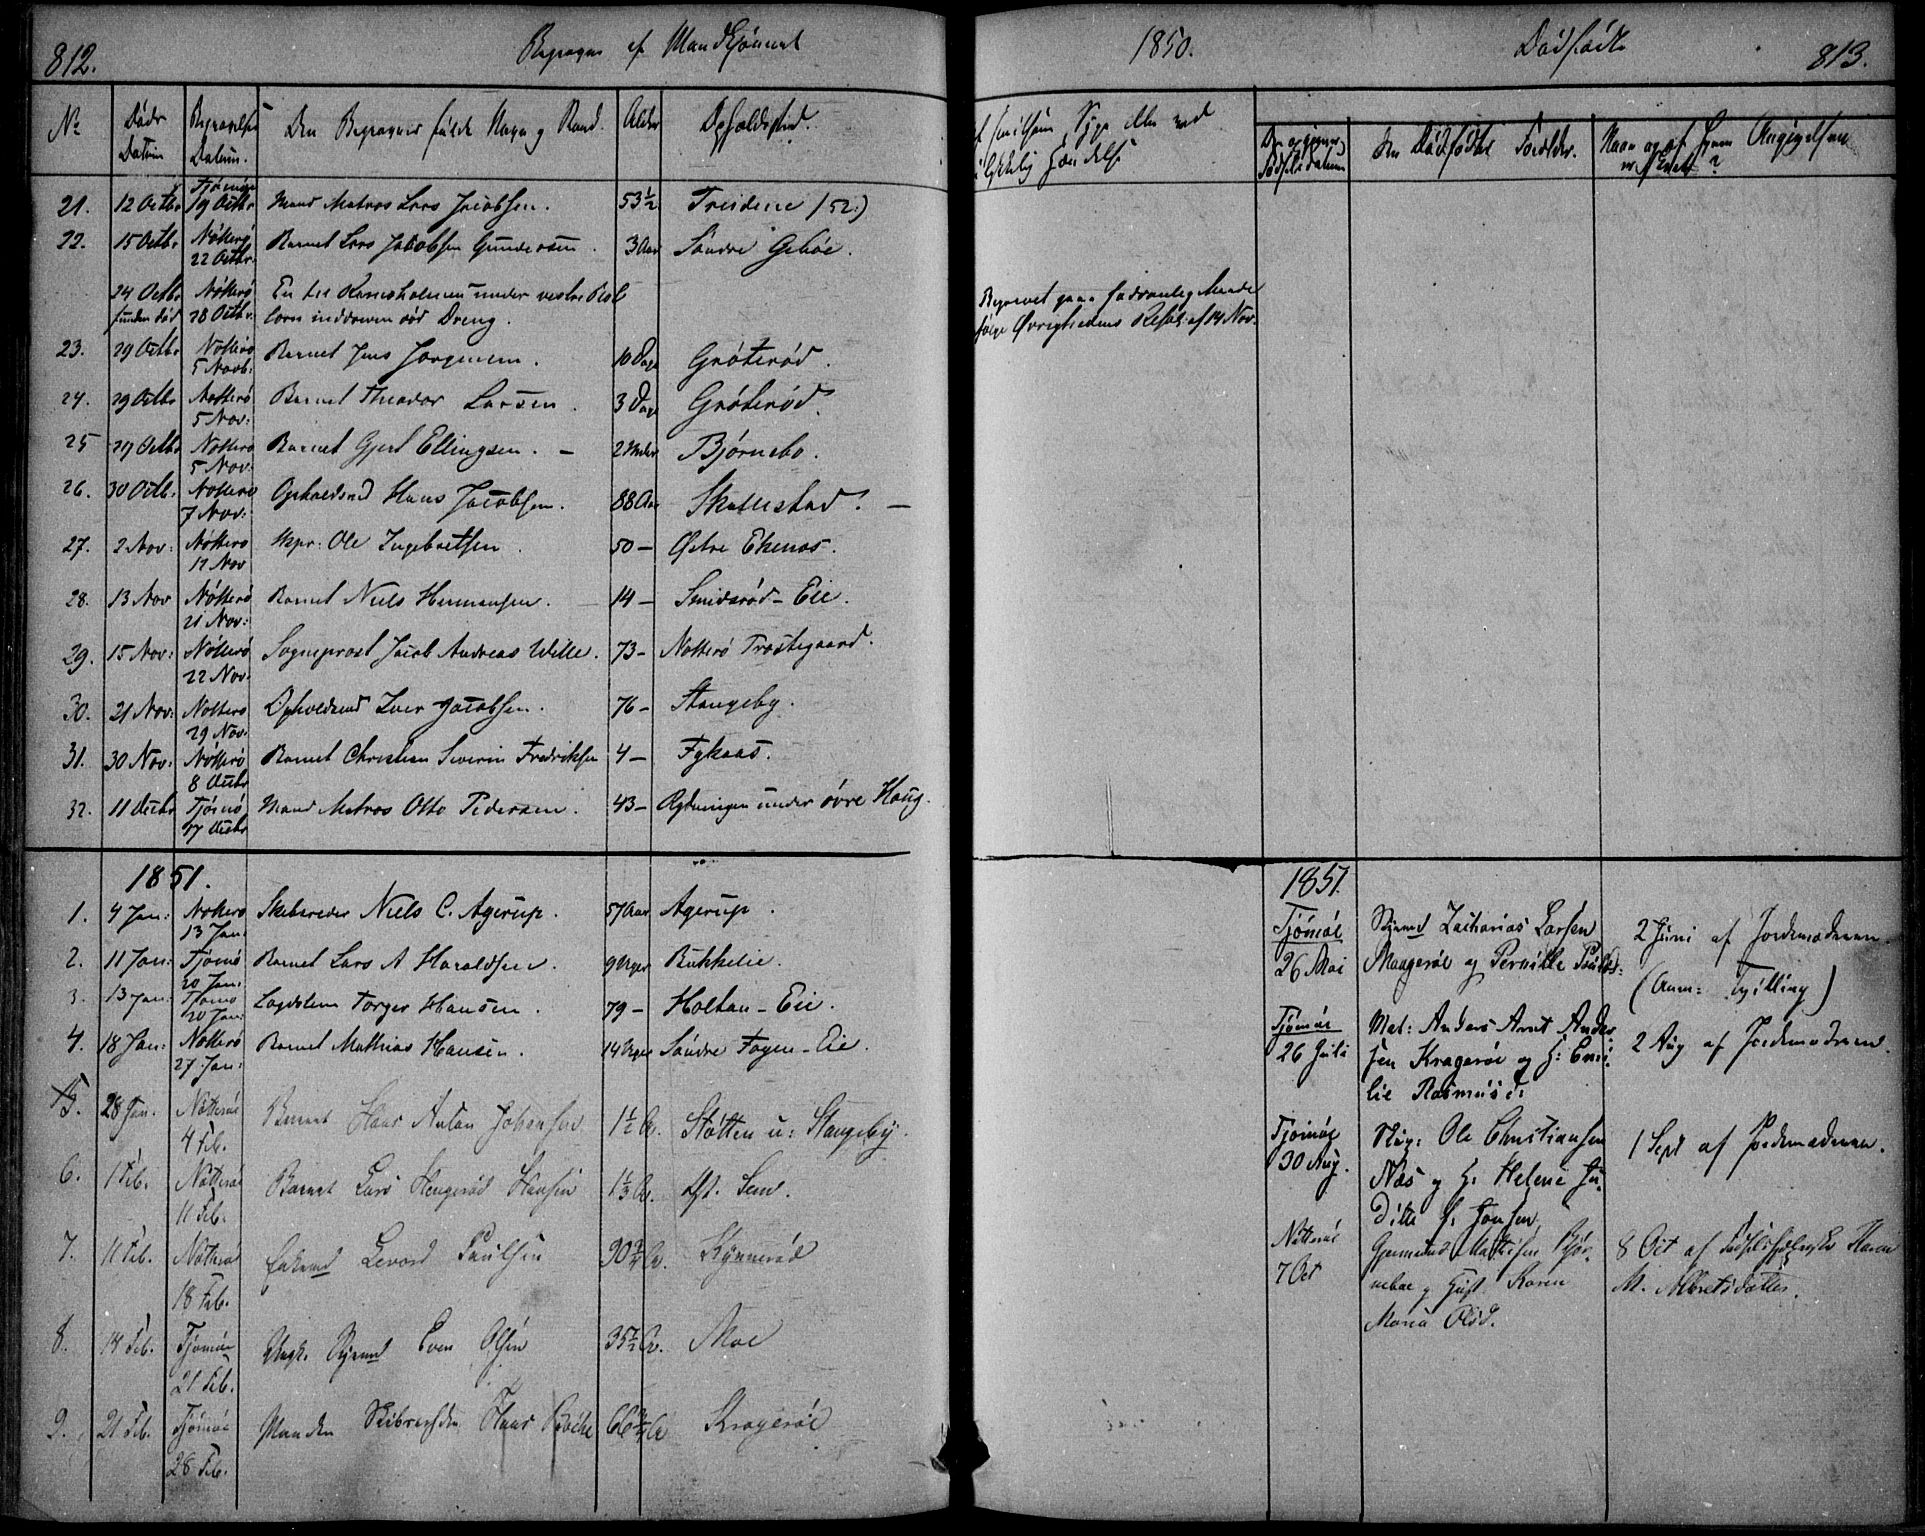 812.
Begravne af Mandkjønnet
No
Døds Datum
Begravelses Datum.
Den Begravnes fulde Navn og Stand.
Alder
Opholdssted.
21. 12 Octbr Tjømø 19 Octbr Mand Matros Lars Jacobsen. 53½ Treidene (52.)
22. 15 Octbr. Nøtterø 22 Octbr. Barnet Lars Jakobsen Gundersen. 3 Aar Søndre Gebøe.
24 Octbr funden død Nøtterø 28 Octbr. En til Karnsholmen under vestre
inddreven død Dreng.
23. 29 Octbr Nøtterø 5 Novb: Barnet Jens Jørgensen. 10 Dage Grøterød.
24. 29 Octbr Nøtterø 5 Nov: Barnet Theodor Larsen. 3 Dage Grøterød.
25 29 Octbr Nøtterø 5 Nov: Barnet Gjert Ellingsen. — 2 Mdr Bjørnebo.
26. 30 Octb. Nøtterø 7 Nov: Opholdsmd Hans Jacobsen. 88 Aar Skallestad. —
27. 2 Nov: Nøtterø 11 Nov Skpr: Ole Ingebretsen. 50 — Østre Ekenes.
28. 13 Nov Nøtterø 21 Nov: Barnet Niels Hermansen. 14 — Smidsrød-Eie.
29. 15 Nov: Nøtterø 22 Nov. Sogneprost Jacob Andreas Wille. 73 — Nøtterø Præstegaard.
30. 21 Nov: Nøtterø 29 Nov. Opholdsmd Iver Jacobsen. 76 — Stangeby.
31. 30 Nov: Nøtterø 8 Decbr Barnet Christian Severin Fredriksen 4 — Fykaas.
32. 11 Decbr Tjømø 17 Decbr Mand Matros Otto Pedersen. 43 — Rydningen under øvre Haug.
1851.
1. 4 Jan: Nøtterø 13 Jan: Skibsreder Niels C. Agerup. 57 Aar Agerup.
2. 11 Jan: Tjømø 20 Jan: Barnet Lars A Haraldsen. 9 Uger Bukkelie.
3. 13 Jan: Tjømø 20 Jan: Lægdslem Torger Hansen. 79 — Holtan-Eie.
4. 18 Jan: Nøtterø 27 Jan: Barnet Mathias Hansen. 14 Uger Søndre Føyen-Eie.
5. 28 Jan. Nøtterøe 4 Feb. Barnet Hans Anton Johansen 1½ A. Støtten u: Stangeby.
6. 1 Feb. Nøtterøe 11 Feb. Barnet Lars Hengerød Hansen 1⅓ A. Sem.
7. 11 Feb. Nøtterøe 18 Feb. Enkemd Levord Paulsen 90¾ A. Kjynnerød
8. 14 Feb. Tjømøe 21 Feb. Ungk. Even Olsen 35½ A. Moe
9. 21 Feb. Tjømøe 28 Feb. Manden Hans 66¾ A Kragerøe
1850.
Dødfødte
813.
Syge eller ved
ulykkelig Hændelse
Fødselsdatum
den Dødfødtes Forældre.
Naar og af hvem Angivelsen er skeet?
Begravet paa sædvanlig Maade
følge Øvrighedens Resol: af 14 Nov.
1851.
Tjømøe 26 Mai
Zacharias Larsen
Maagerøe og Pernille
2 Juni af Jordemoderen.
(Anm: Tvilling)
Tjømøe 26 Juli
Mat: Anders Arnt Ander-
sen Kragerøe og H: Emi-
lie Rasmusd:
2 Aug af Jordemoderen.
Tjømøe 30 Aug.
Ole Christiansen
Næs og H: Helene Ju-
ditte Jonsen
1 Sept af Jordemoderen.
Nøtterøe 7 Oct
Gaarmand Mathisen Bjør-
neboe og Hust. Karen
Maria Olsd.
8 Oct af Fødselshjelperske Karen
M. Albretsdatter.